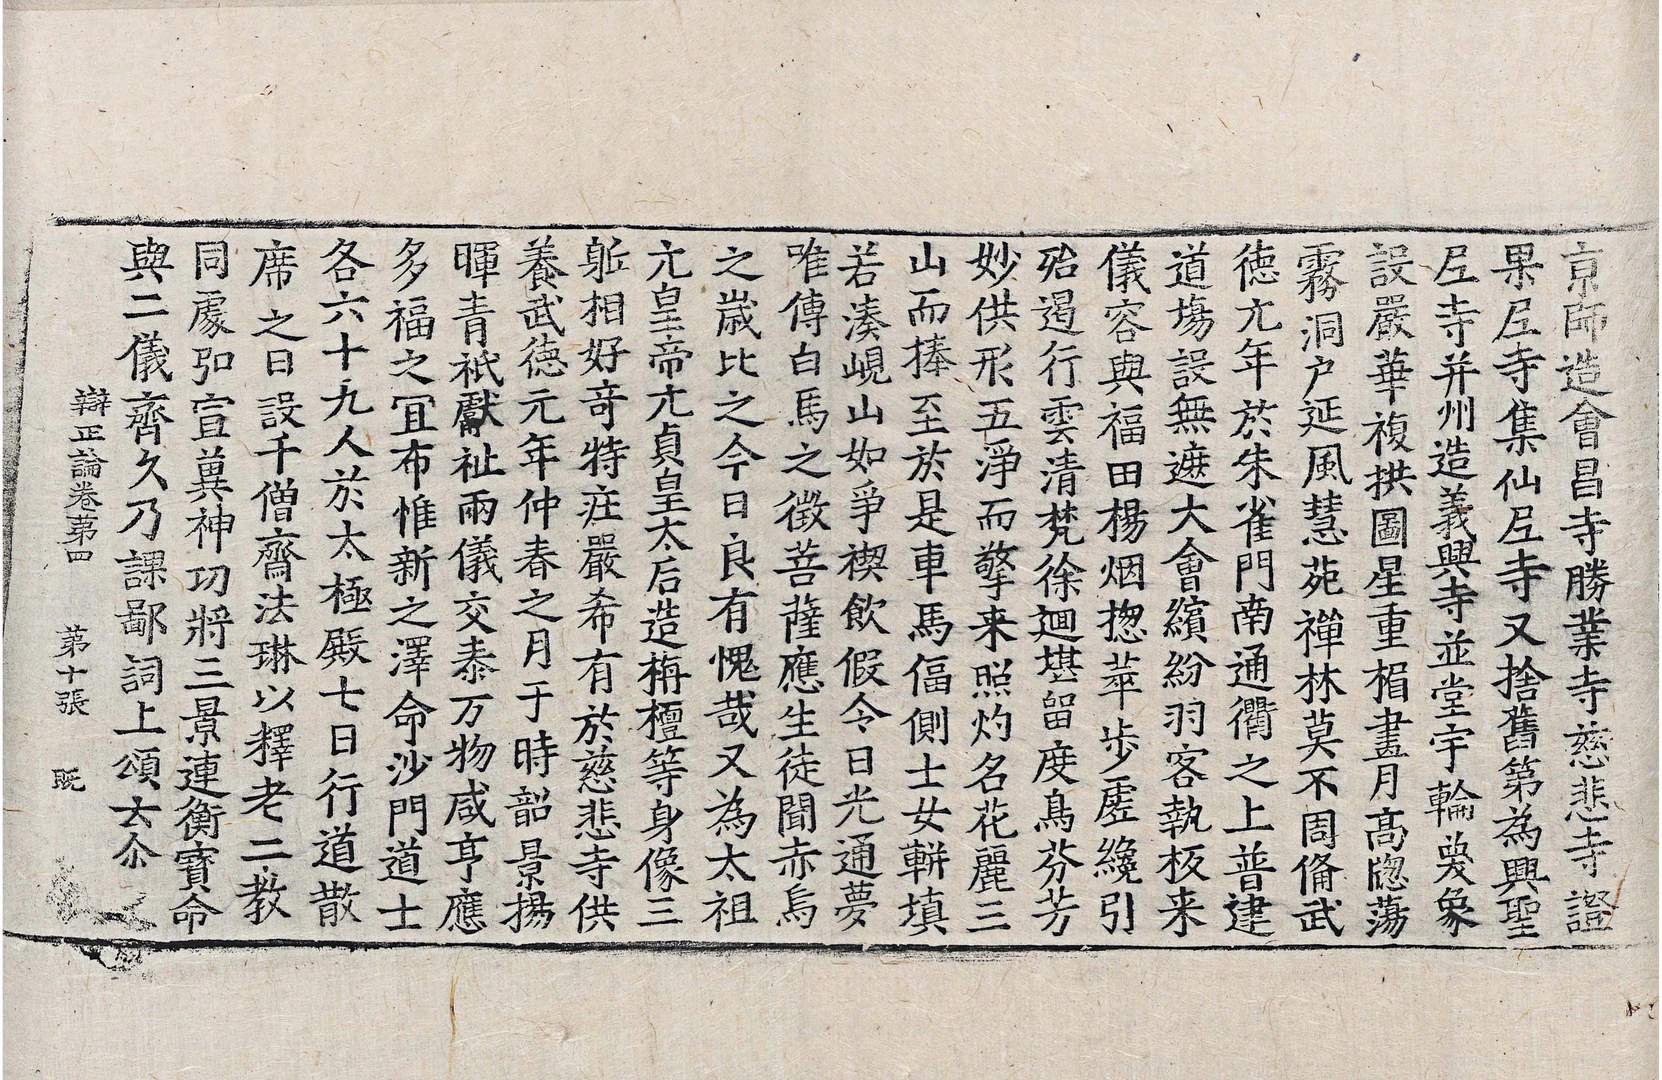 京師造會昌寺勝業寺慈悲寺證
果尼寺集仙尼寺又捨舊第為興聖
尼寺并州造義興寺並堂宇輪奐象
設嚴華複拱圖星重楣畫月高牕蕩
霧洞户延風慧苑禪林莫不周備武
徳元年於朱雀門南通衢之上普建
道塲設無遮大會繽紛羽客執板来
儀容與福田楊烟揔萃步虚纔引
殆遏行雲清梵徐廻堪留度鳥芬芳
妙供形五淨而擎来照灼名花麗三
山而捧至於是車馬偪側士女軿填
若湊峴山如爭禊飲假令日光通夢
唯傳白馬之徵菩薩應生徒聞赤烏
之歳比之今日良有愧哉又為太祖
元皇帝元貞皇太后造栴檀等身像三
軀相好奇特疰嚴希有於慈悲寺供
養武徳元年仲春之月于時韶景揚
暉青祇獻祉兩儀交泰万物咸亨應
多福之冝布惟新之澤命沙門道士
各六十九人於太極殿七日行道散
席之日設千僧齋法琳以釋老二教
同處弘宣冀神功將三景連衡寳命
與二儀齊久乃課鄙詞上頌云尒
辯正論卷苐四 苐十張 既